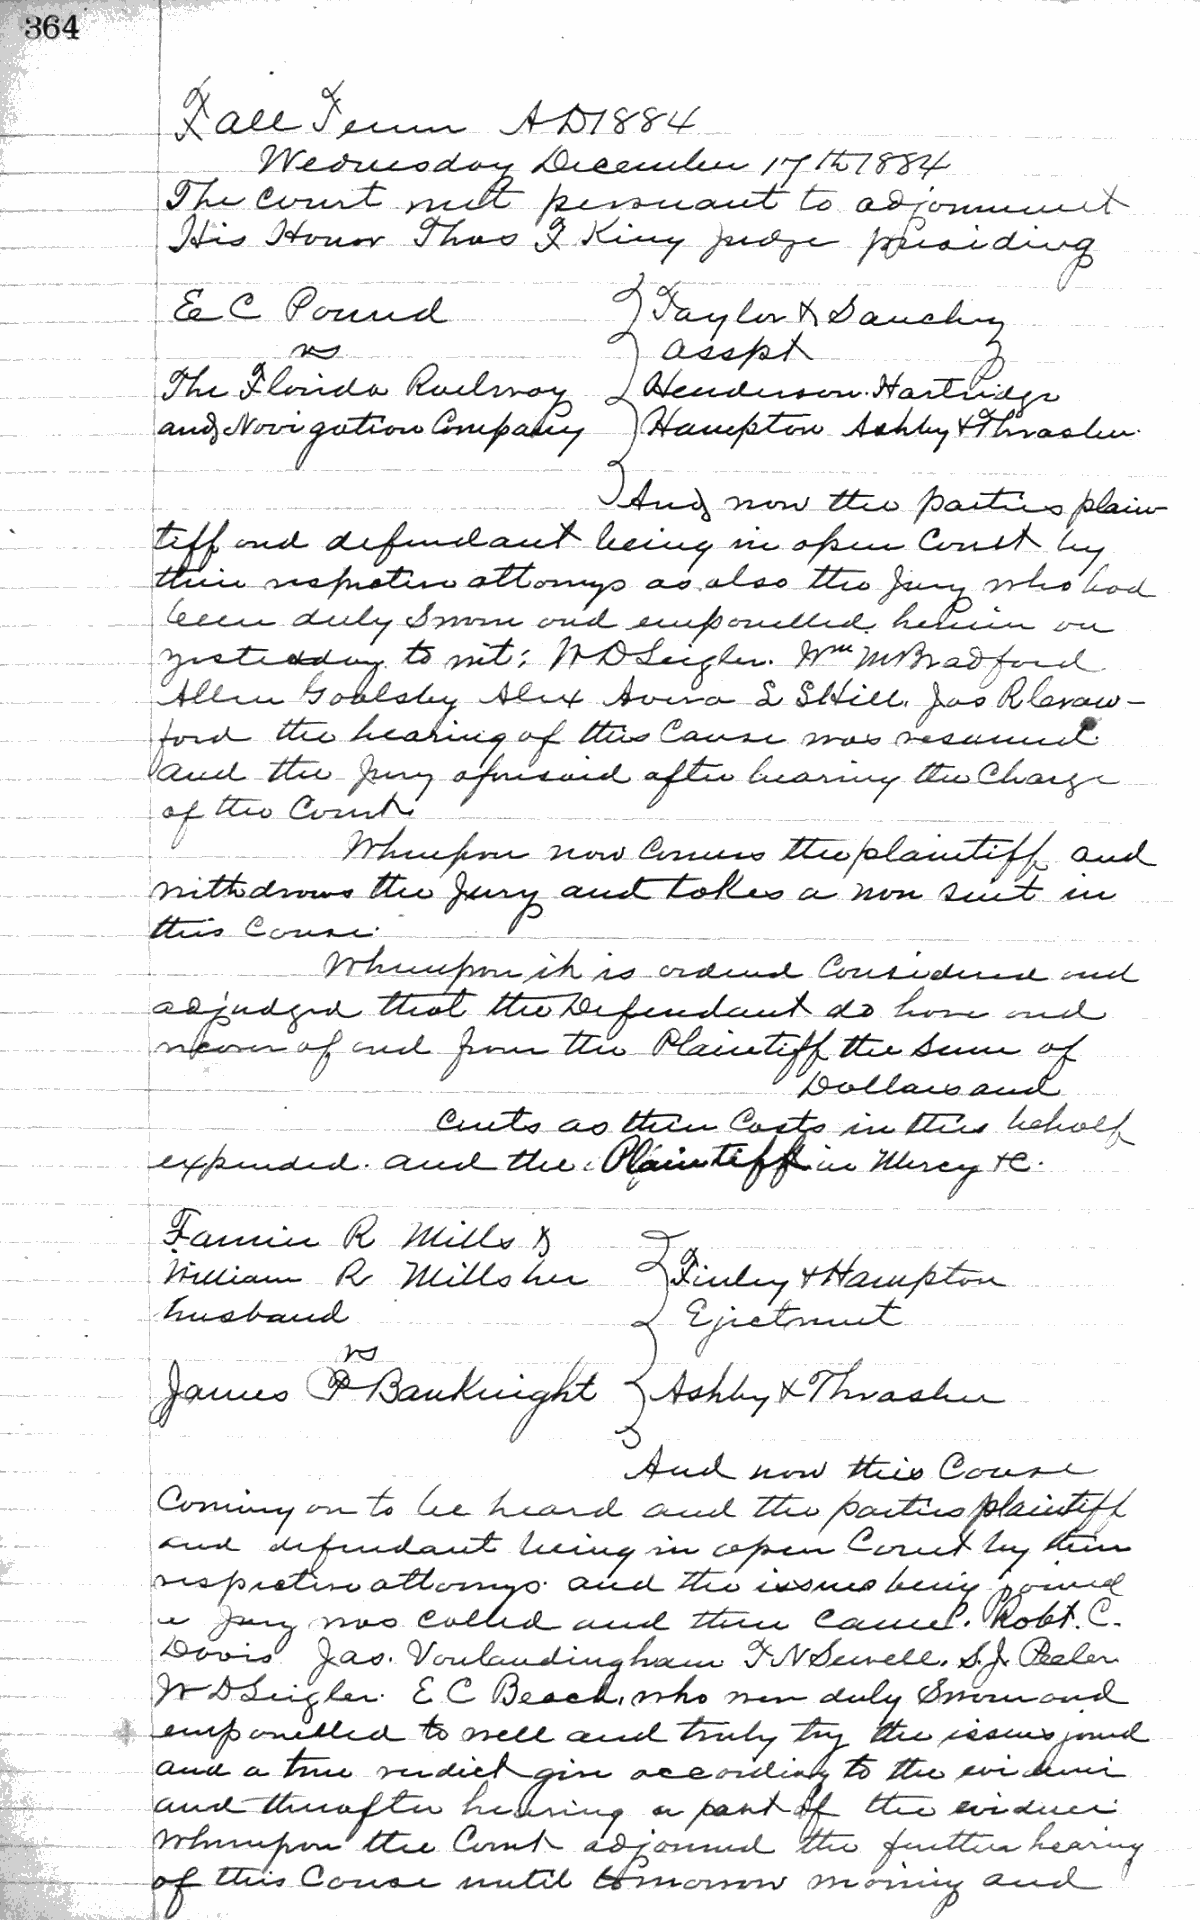 364
Fall Term AD 1884
Wednesday December 17th 1884
The Court met persuant to adjournment
His Honor Thos F King Judge presiding
E C Pound } Taylor & Sanchez
vs } asspt
The Florida Railway } Henderson. Hartridge
and Navigation Company } Hampton Ashby & Thrasher.
And now the parties plain-
tiff and defendant being in open Court by
their respective attorneys as also the Jury who had
been duly Sworn and empanelled herein on
yesterday to wit; W D Seigler. Wm McBradford
Allen Goolsby Alex Avera L S Hill. Jas R Craw-
ford the hearing of this Cause was resumed
and the Jury aforesaid after hearing the Charge
of the Court.
Whereupon now Comes the plaintiff and
withdraws the Jury and takes a non suit in
this Cause.
Whereupon it is ordered Considered and
adjudged that the Defendant do have and
recover of and from the Plaintiff the sum of
Dollars and
Cents as their Costs in this behalf
expended. and the Plaintiff in Mercy &C.
Fannie R Mills &
William R Mills her } Finley & Hampton
husband } Ejectment
vs
James P Bauknight } Ashby & Thrasher
And now this Cause
Coming on to be heard and the parties plaintiff
and defendant being in open Court by their
respective attorneys. and the issues being joined
a Jury was called and then came. Robt. C.
Davis Jas. Vanlandingham F N Sewell. S. J. Peeler
W D Seigler. E C Beach. who were duly Sworn and
empanelled to well and truly try the issues joined
and a true verdict give according to the evidence
and thereafter hearing a part of the evidence
Whereupon the Court adjourned the further hearing
of this Cause until tomorrow morning and